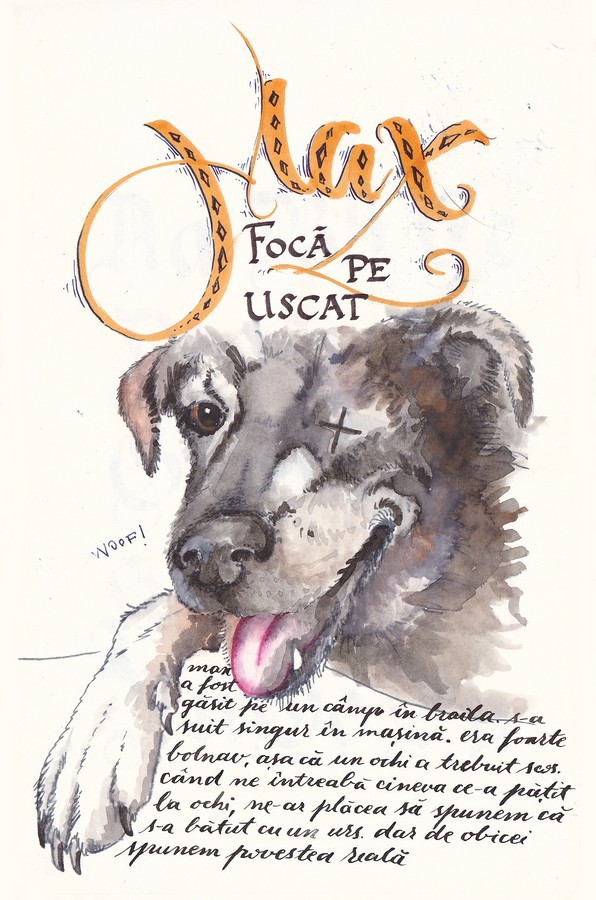 Max
FOCĂ
PE
USCAT
WOOF!
max
a fost
găsit pe un câmp în braila. s-a
suit singur în mașină. era foarte
bolnav, așa că un ochi a trebuit scos.
când ne întreabă cineva ce-a pățit
la ochi, ne-ar plăcea să spunem că
s-a bătut cu un urs. dar de obicei
spunem povestea reală